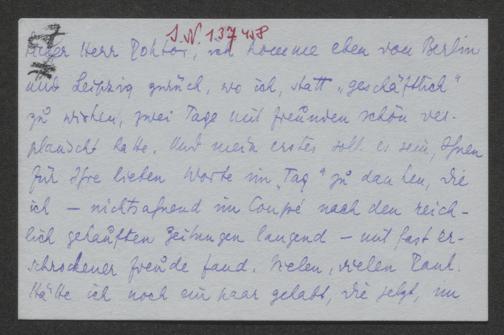 J.N. 137458
Lieber Herr Doktor, ich komme eben von Berlin
und Leipzig zurück, wo ich, statt „geschäftlich“
zu wirken, zwei Tage mit Freunden schön ver-
plauscht habe. Und mein erstes soll es sein, Ihnen
für Ihre lieben Worte im „Tag“ zu danken, die
ich – nichtsahnend im Coupé nach den reich-
lich gehäuften Zeitungen langend – mit fast er-
schrockener Freude fand. Vielen, vielen Dank.
Hätte ich noch ein paar gehabt, die jetzt, im